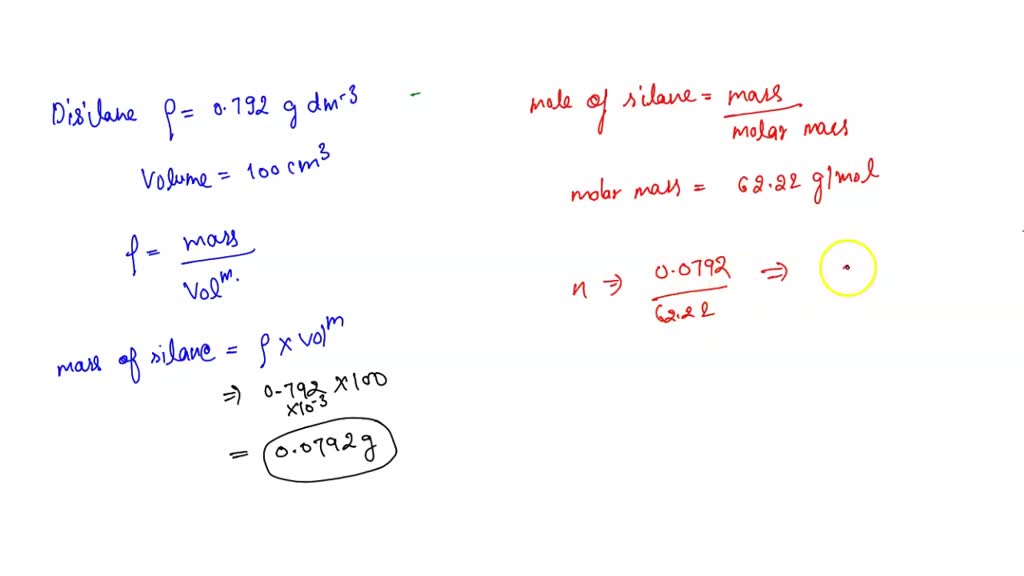 Disilane ρ = 0.792 g dm-3
Volume = 100 cm3
ρ = mass / Volm.
mass of silane = ρ x Volm
⇒ 0.792 x 100
x10-3
= 0.0792 g
mole of silane = mass / molar mass
molar mass = 62.22 g/mol
n ⇒ 0.0792 / 62.22 ⇒